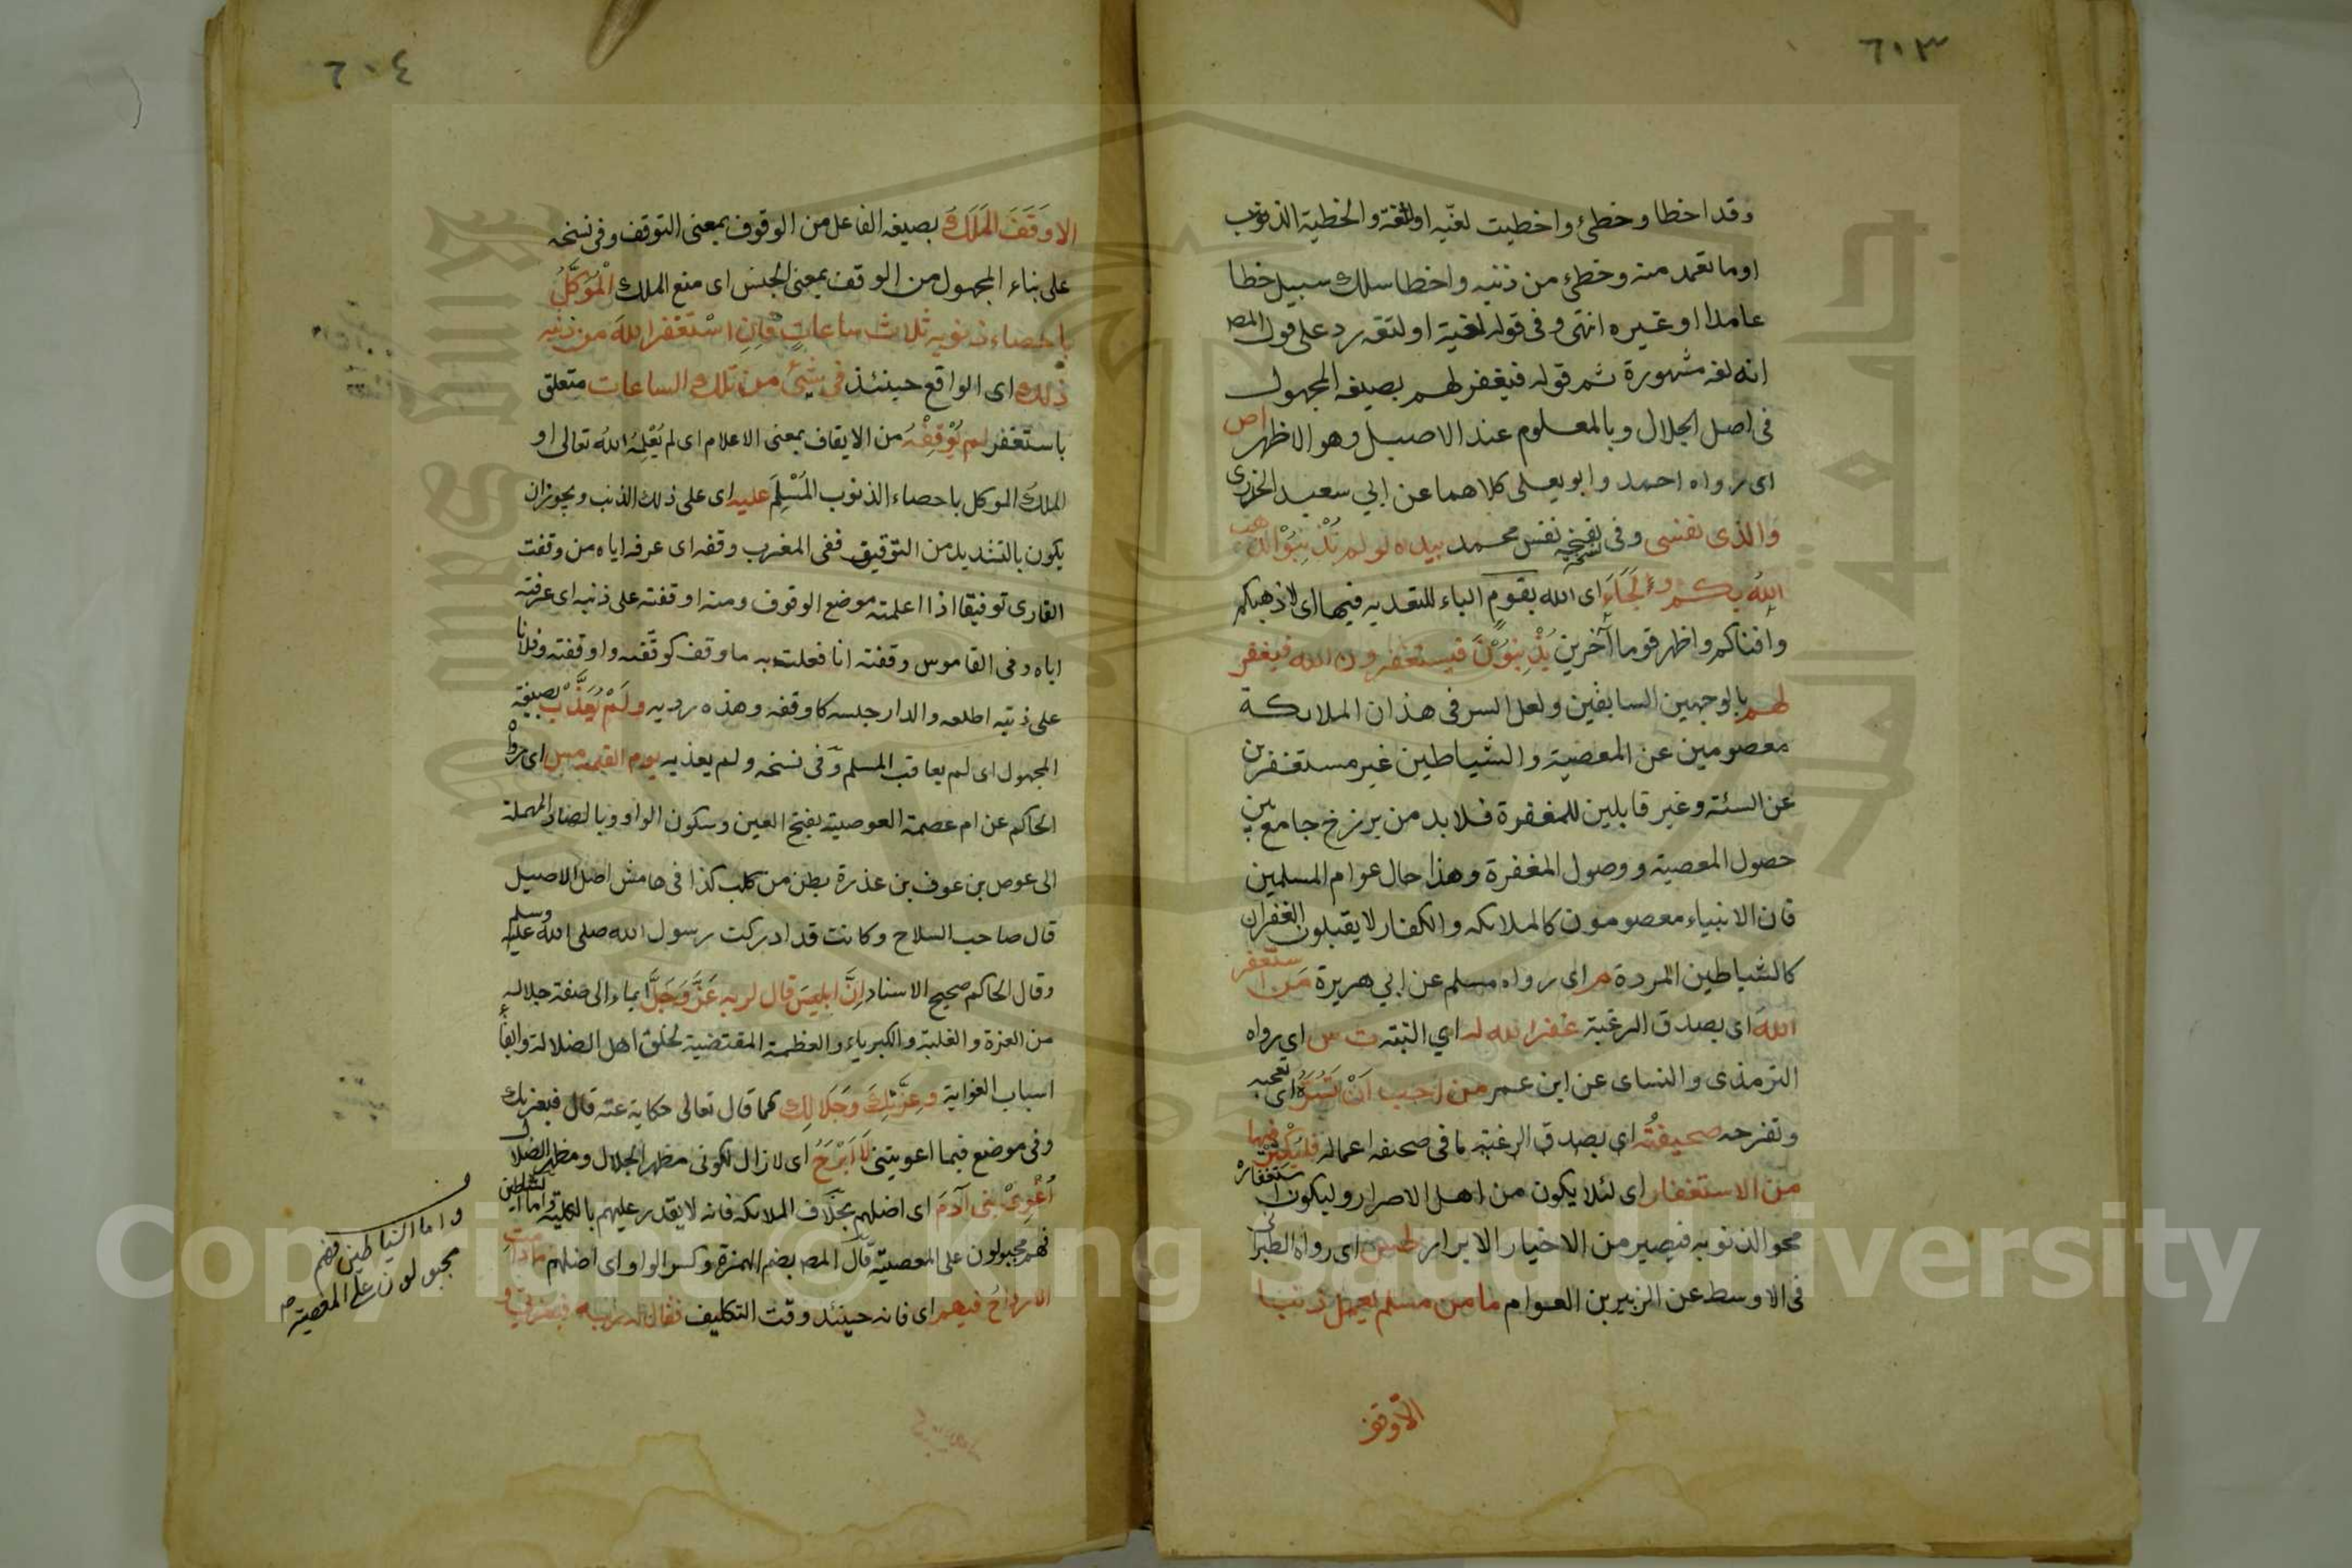 ٦٠٣
وقد اخطا وخطئ واخطيت لغيّه او لثغة والخطية الذنوب
او ما تعمد منه وخطئ من ذنبه واخطا سلك سبيل خطا
عامدا او غيره انتهى وفى قوله لغية او لتغه رد على قول المص
انه لغه مشهورة ثم قوله فيغفر لهم بصيغه المجهول
فى اصل الجلال وبالمعلوم عند الاصيل وهو الاظهر اص
اى رواه احمد وابو يعلى كلاهما عن ابي سعيد الخدري
والذى نفسى وفى نسخه نفس محمد بيده لو لم تُذْنِبُوْا لذهب
اللهُ بكم ولَجَاءَ اى الله بقومٍ الباء للتعديه فيهما اى لاذهبكم
وافناكم واظهر قوما آخرين يُذْنِبُوْنَ فيستغفرون الله فيغفر
لهم بالوجهين السابقين ولعل السر فى هذا ان الملائكة
معصومين عن المعصية والشياطين غير مستغفرين
عن السئة وغير قابلين للمغفرة فلابد من برزخ جامع بين
حصول المعصية ووصول المغفرة وهذا حال عوام المسلمين
فان الانبياء معصومون كالملائكه والكفار لا يقبلون الغفران
كالشياطين المردة م اى رواه مسلم عن ابي هريرة مَن استغفر
اللهَ اى بصدق الرغبة غفر الله له اي البته ت س اى رواه
الترمذى والنساى عن ابن عمر من احب اَنْ تَسُرَّهُ اى تعجبه
وتفرحه صحيفتُه اى بصدق الرغبة لما فى صحفه اعماله فليُكْثِرْ فيها
من الاستغفار اى لئلا يكون من اهل الاصرار وليكون استغفاره
محو الذنوبه فيصير من الاخيار الابرار طس اى رواه الطبرانى
فى الاوسط عن الزبير بن العوام ما من مسلم يعمل ذنبا
الّا وقف
٦٠٤
الا وَقَفَ المَلَكُ بصيغه الفاعل من الوقوف بمعنى التوقف وفى نسخه
على بناء المجهول من الوقف بمعنى الحبس اى منع الملك الْمُوَكَّلُ
باحصاء ذنوبه ثلاث ساعاتٍ فاِنِ اسْتَغْفر اللهَ من ذنبه
ذلك اى الواقع حينئذ فى شيْئ من تلك الساعات متعلق
باستغفر لم يُوْقِفْهُ من الايقاف بمعنى الاعلام اى لم يُعْلِمْهُ اللهُ تعالى او
الملكُ الموكل باحصاء الذنوب المَسْلِمَ عليه اى على ذلك الذنب ويجوز ان
يكون بالتشديد من التوقيق ففى المغرب وقفه اى عرفه اياه من وقفت
القارى توفيقا اذا اعلمته موضع الوقوف ومنه اوقفته على ذنبه اى عرفته
اياه وفى القاموس وقفته انا فعلت به ما وقف كوقّفه واوقفته وفلانا
على ذنبه اطلعه والدار جلسه كاوقفه وهذه رديه ولَمْ يُعَذَّبْ بصيغة
المجهول اى لم يعاقب المسلم وفى نسخه ولم يعذبه يوم القيمة مس اى رواه
الحاكم عن ام عصمة العوصية بفتح العين وسكون الواو وبالصاد المهملة
الى عوص بن عوف بن عذرة بطن من كلب كذا فى هامش اصل الاصيل
قال صاحب السلاح وكانت قد ادركت رسول الله صلى الله عليه وسلم
وقال الحاكم صحيح الاسناد اِنَّ ابليسَ قال لربه عَزَّ وَجَلَّ ايماء الى صفة جلاله
من العزة والغلبة والكبرياء والعظمة المقتضية لخلق اهل الضلالة وابقاء
اسباب الغواية وعِزَّتِكَ وجَلالِك كما قال تعالى حكاية عنه قال فبعزتك
وفى موضع فبما اغويتنى لَا اَبْرَحُ اى لا زال لكونى مظهر الجلال ومظهر الضلال
اُغْوِىْ بنى آدَمَ اى اضلهم بخلاف الملائكه فانه لا يقدر عليهم بالكليه واما الشياطين
فهم مجبولون على المعصية قال المص بضم الهمزة وكسر الواو اى اضلهم ما دامت
الارواحُ فيهم اى فانه حينئد وقت التكليف فقال له ربُّه فبعزتي و
واما الشياطين فهم
مجبولون على المعصية صح
Copyright © King Saud University